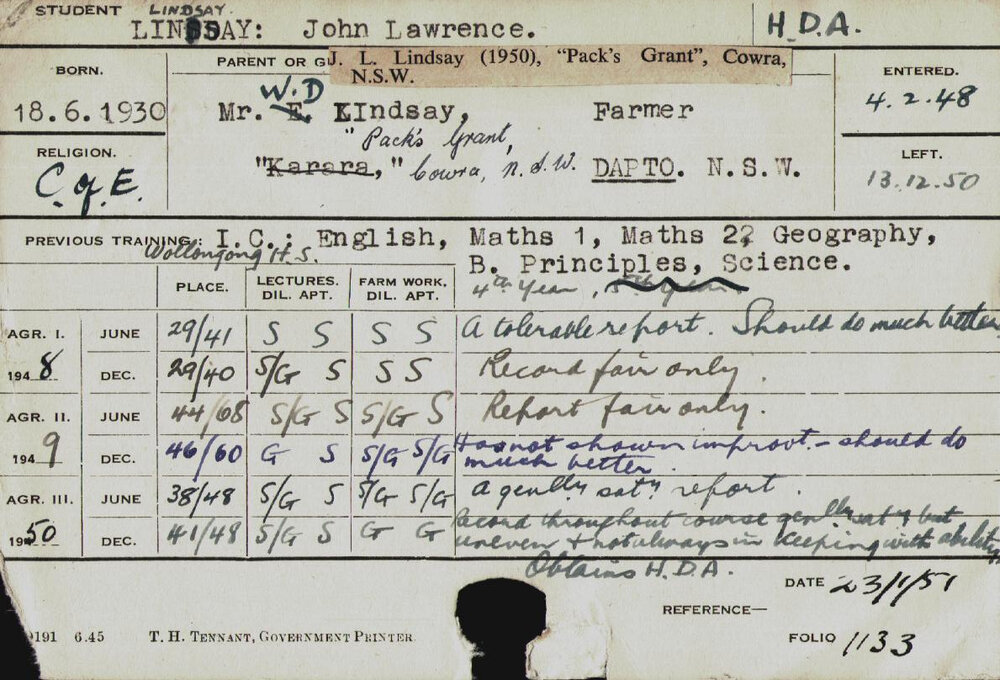 STUDENT LINDSAY.
LINDSAY: John Lawrence. H.D.A.
BORN. PARENT OR G J. L. Lindsay (1950), “Pack's Grant”, Cowra, ENTERED.
N.S.W.
W.D
18.6.1930 Mr. E. LIndsay, Farmer 4.2.48
"Pack's Grant,
RELIGION. LEFT.
C. of E. "Karara," Cowra, N.S.W. DAPTO. N.S.W. 13.12.50
PREVIOUS TRAINING: I.C.: English, Maths 1, Maths 2, Geography,
Wollongong H.S. B. Principles, Science.
4th Year, 5th Year.
PLACE. LECTURES. DIL. APT. FARM WORK. DIL. APT.
AGR. I. JUNE 29/41 S S S S A tolerable report. Should do much better
1948 DEC. 29/40 S/G S S S Record fair only.
AGR. II. JUNE 44/68 S/G S S/G S Report fair only.
1949 DEC. 46/60 G S S/G S/G Has not shown improvt. – should do
much better.
AGR. III. JUNE 38/48 S/G S S/G S/G A genlly saty report.
1950 DEC. 41/48 S/G S G G Record throughout course genlly saty but
uneven & not always in keeping with ability.
Obtains H.D.A.
DATE 23/1/51
REFERENCE—
9191 6.45 T. H. TENNANT, GOVERNMENT PRINTER
FOLIO 1133